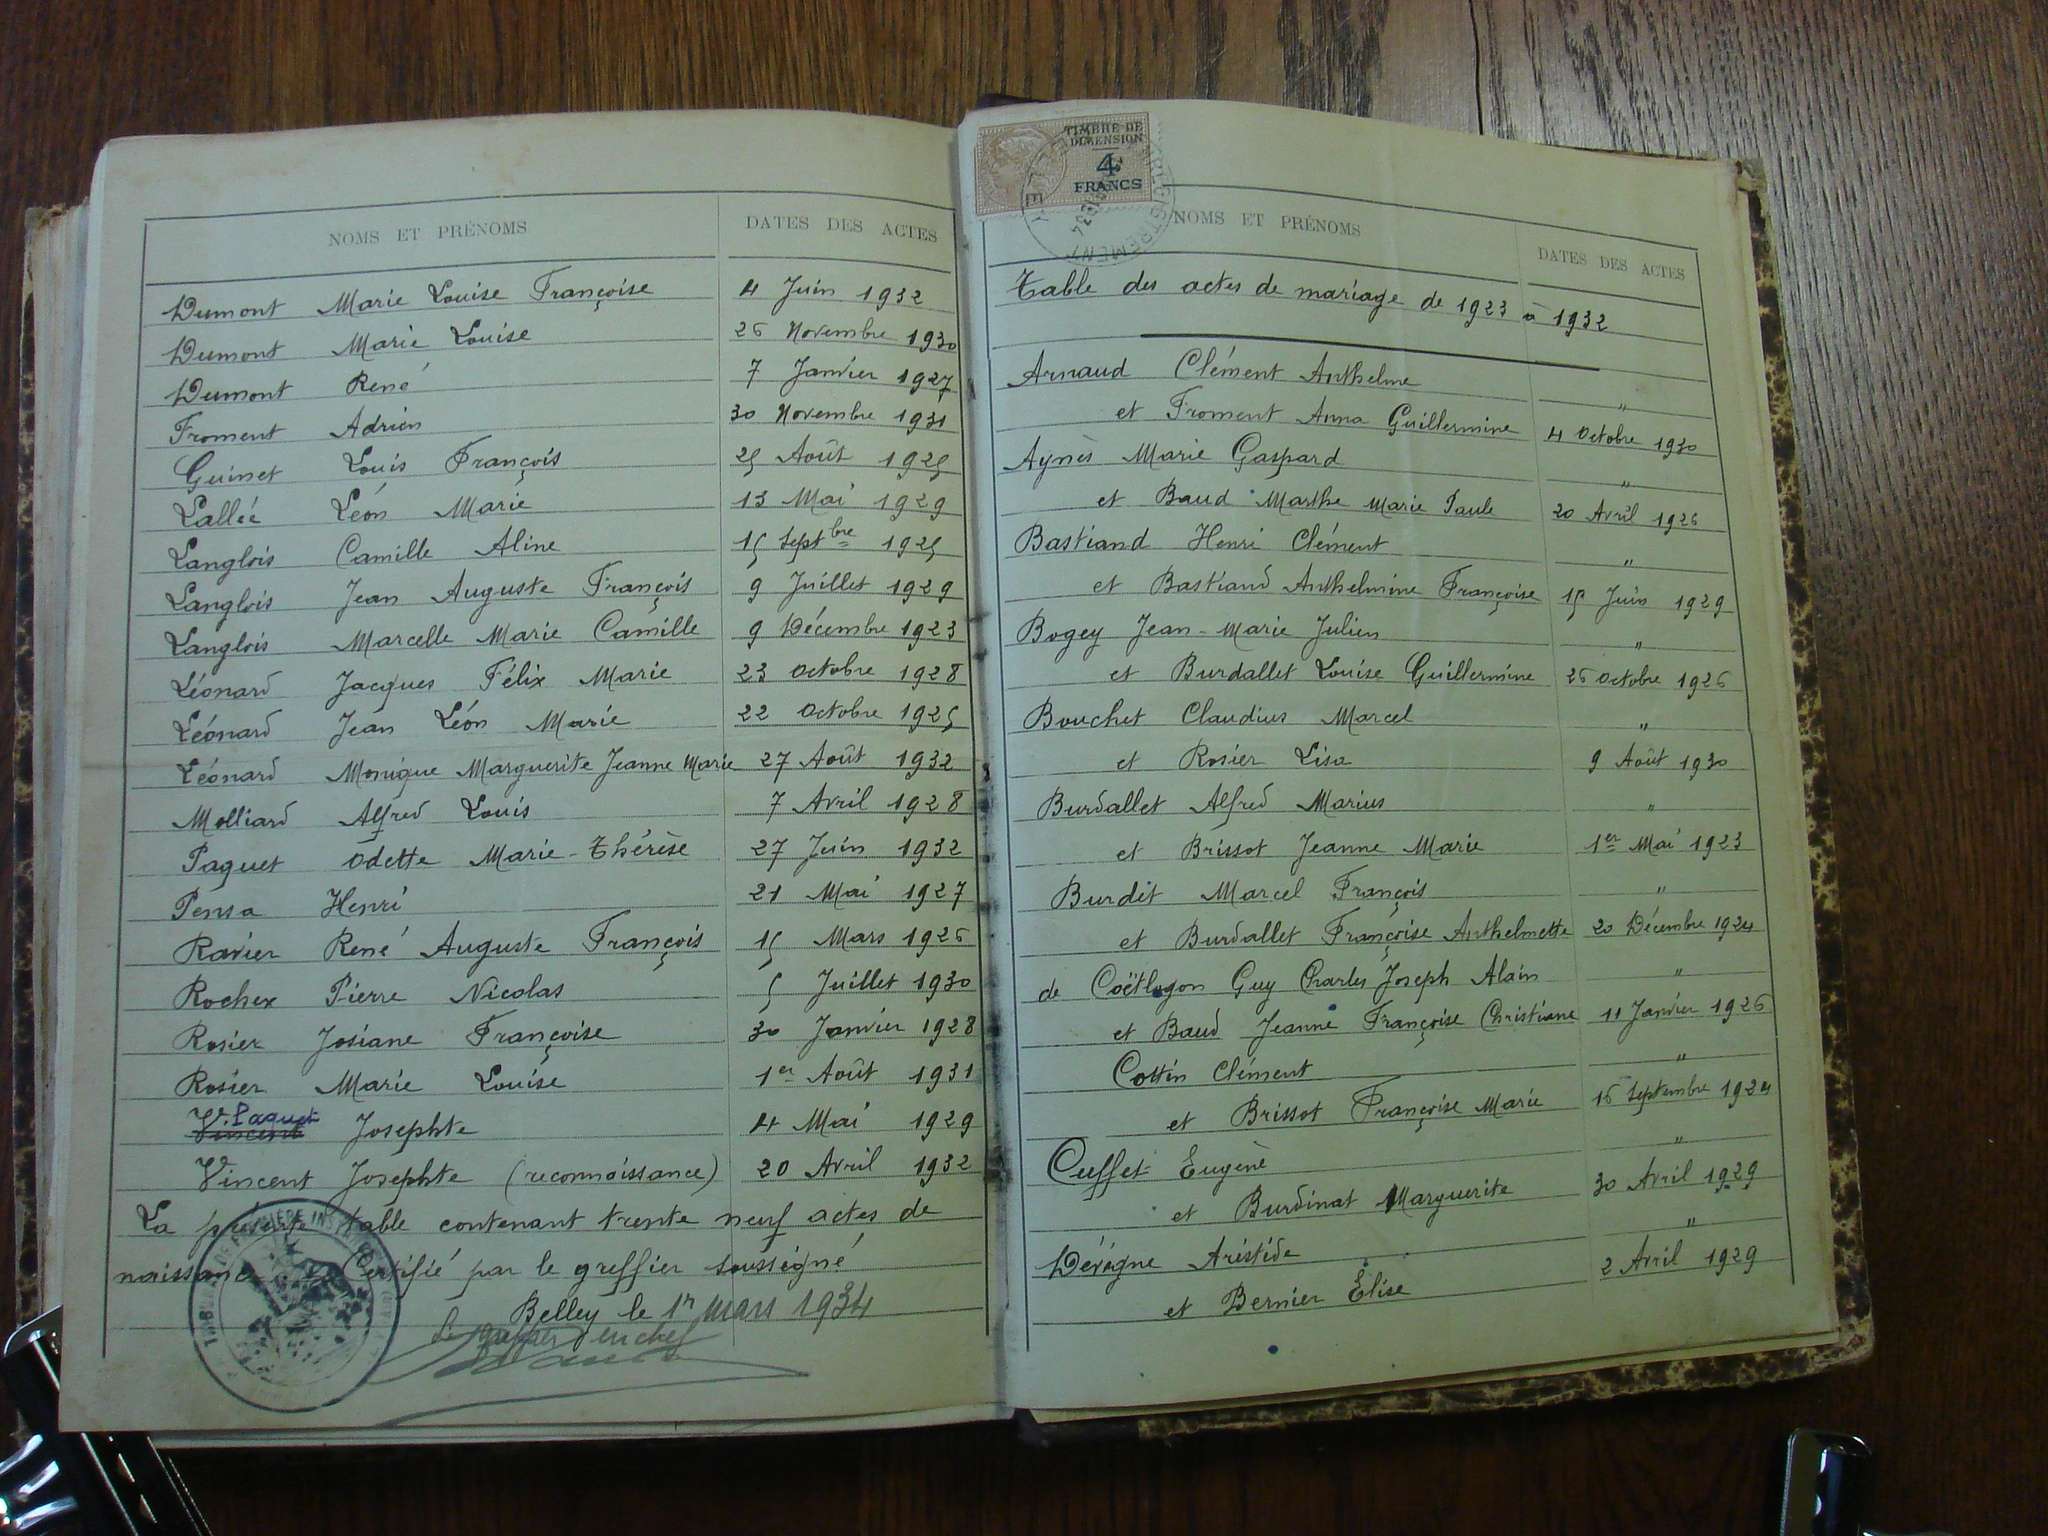 NOMS ET PRÉNOMS DATES DES ACTES
Dumont Marie Louise Françoise 4 Juin 1932
Dumont Marie Louise 26 Novembre 1930
Dumont René 7 Janvier 1927
Froment Adrien 30 Novembre 1931
Guinet Louis François 25 Août 1925
Lallée Léon Marie 13 Mai 1929
Langlois Camille Aline 15 Septbre 1925
Langlois Jean Auguste François 9 Juillet 1929
Langlois Marcelle Marie Camille 9 Décembre 1923
Léonard Jacques Félix Marie 23 Octobre 1928
Léonard Jean Léon Marie 22 Octobre 1925
Léonard Monique Marguerite Jeanne Marie 27 Août 1932
Molliard Alfred Louis 7 Avril 1928
Paquet Odette Marie-Thérèse 27 Juin 1932
Pensa Henri 21 Mai 1927
Ravier René Auguste François 15 Mars 1926
Rochex Pierre Nicolas 5 Juillet 1930
Rosier Josiane Françoise 30 Janvier 1928
Rosier Marie Louise 1er Août 1931
V. Paquet
Vincent Josephte 4 Mai 1929
Vincent Josephte (reconnaissance) 20 Avril 1932
La présente table contenant trente neuf actes de
naissance Certifié par le greffier soussigné
Belley le 1er mars 1934
Le greffier en chef
TIMBRE DE
DIMENSION
4
FRANCS
NOMS ET PRÉNOMS DATES DES ACTES
Table des actes de mariage de 1923 à 1932
Arnaud Clément Anthelme "
et Froment Anna Guillermine 4 Octobre 1930
Aynès Marie Gaspard "
et Baud Marthe Marie Paule 20 Avril 1926
Bastiand Henri Clément "
et Bastiand Anthelmine Françoise 15 Juin 1929
Bogey Jean-Marie Julien "
et Burdallet Louise Guillermine 26 Octobre 1926
Bouchet Claudius Marcel "
et Rosier Lisa 9 Août 1930
Burdallet Alfred Marius "
et Brissot Jeanne Marie 1er Mai 1923
Burdet Marcel François "
et Burdallet Françoise Anthelmette 20 Décembre 1924
de Coëtlogon Guy Charles Joseph Alain "
et Baud Jeanne Françoise Christiane 11 Janvier 1926
Cottin Clément "
et Brissot Françoise Marie 16 Septembre 1924
Cuffet Eugène "
et Burdinat Marguerite 30 Avril 1929
Dévigne Aristide "
et Bernier Élise 2 Avril 1929